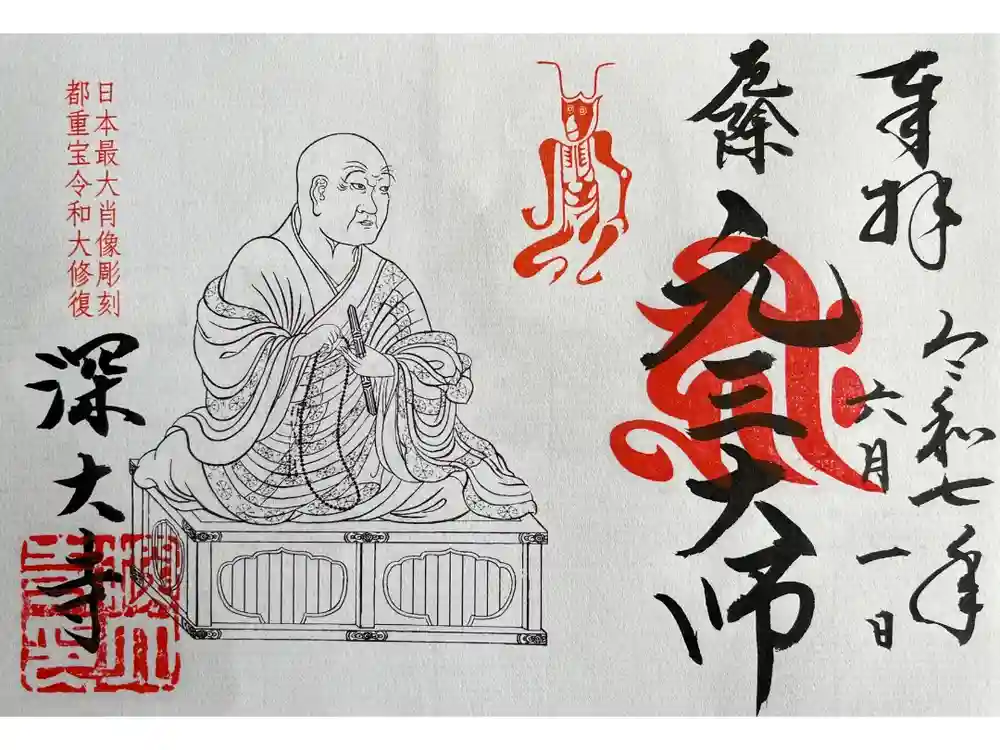 奉拝
令和七年
六月一日
厄除
元三大師
日本最大肖像彫刻
都重宝令和大修復
深大寺